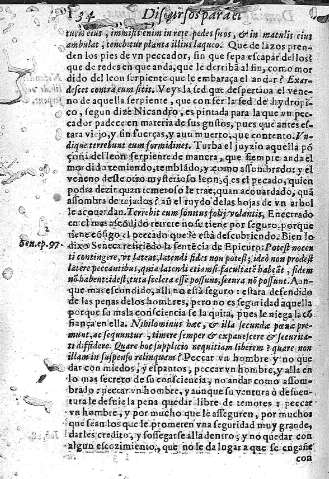 54 Discursos para el
turis eius, immisit enim in rete pedes suos, & in maculis eius
ambulat, tenebitur planta illius laqueo. Que de lazos pren-
den los pies de vn peccador, sin que sepa escapar del los
que de redes en que anda, que le derriba al fin, como mor
dido del leon serpiente que le embaraça el andar? Exar-
descet contra eum sitis. Veys la sed que despertaua el vene-
no de aquella serpiente, que con ser la sed de hydropi-
co, segun dize Nicandro, es pintada para la que vn pec-
cador padece en materia de sus gustos, pues que antes es-
tara viejo, y sin fuerças, y aun muerto, que contento. Vn-
dique terrebunt eum formidines. Turba el juyzio aquella pō
çoña del leon serpiente de manera, que siempre anda el
mordido temiendo, temblādo, y como assombrado: y el
veneno deste otro mysterioso leon, q̄ es el peccado, quien
podra dezir quan temeroso le trae, quan acouardado, quā
assombra de tejados? aū el ruydo de las hojas de vn arbol
le acouardan. Terrebit eum sonitus folij volantis, Encerrado
en el mas ascondido retrete no se tiene por seguro, porque
tiene cōsigo el peccado que le està descubriendo. Bien lo
Sen. ep. 97. dixo Seneca refiriēdo la sentēcia de Epicuro: Potest nocen
ti contingere, vt lateat, latendi fides non potest; ideò non prodest
latere peccantibus, quia latendi etiamsi facultatē habeāt, fidem
nō habent: id est, tuta scelera esse possunt, secura nō possunt. Aun-
que mas escondido, alli, no esta seguro: estara defendido
de las penas de los hombres, pero no es seguridad aquella
porque su mala consciencia se la quita, pues le niega la cō
fiança en ella. Nihilominus hæc, & illa secundæ pœnæ pre-
munt, ac sequuntur, timere semper & expauescere & securita-
ti diffidere. Quare hoc supplicio nequitiam liberem? quare non
illam in suspenso relinquem? Peccar vn hombre y no que-
dar con miedos, y espantos, peccar vn hombre, y alla en
lo mas secreto de su consciencia, no andar como assom-
brado: peccar vn hombre, y aunque su ventura ò desuen-
tura le desuie la pena quedar libre de temores: peccar
vn hombre, y por mucho que le asseguren, por muchos
que sean los que le prometen vna seguridad muy grande,
darles credito, y sossegarse alla dentro, y no quedar con
algun escozimiento, que no le da lugar a que se engañe
con